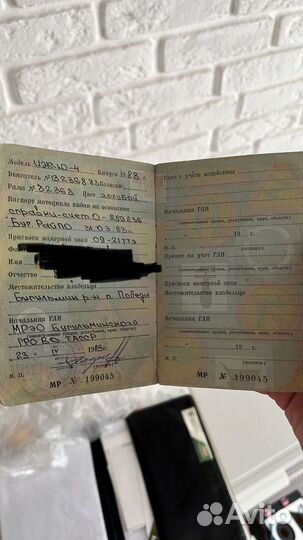 Модель ИЖ-Ю-4 Выпуск 1983 г.
Двигатель № Коляска
Рама № 32363 Цвет голубой
Паспорт мотоцикла выдан на основании
справки-счет О-
Буг. РайПО 31.03.83г.
Присвоен номерной знак 09-21ТТЭ
Имя
Отчество
Местожительство владельца
Бугульмин р-н п. Победа
Начальник ГАИ
МРЭО Бугульминского
(наименование органа, республики, края, области)
ГРОВД ТАССР
23 IV 1983г.
(подпись)
М. П.
МР № 199045
Снят с учёта вследствие
Начальник ГАИ
(наименование органа, республики, края, области)
19 г.
М. П. (подпись)
Принят на учет ГАИ
(наименование органа, республики, края, области)
Присвоен номерной знак
Местожительство владельца
Начальник ГАИ
(наименование органа, республики, края, области)
19 г.
М. П. (подпись)
МР № 199045
Avito